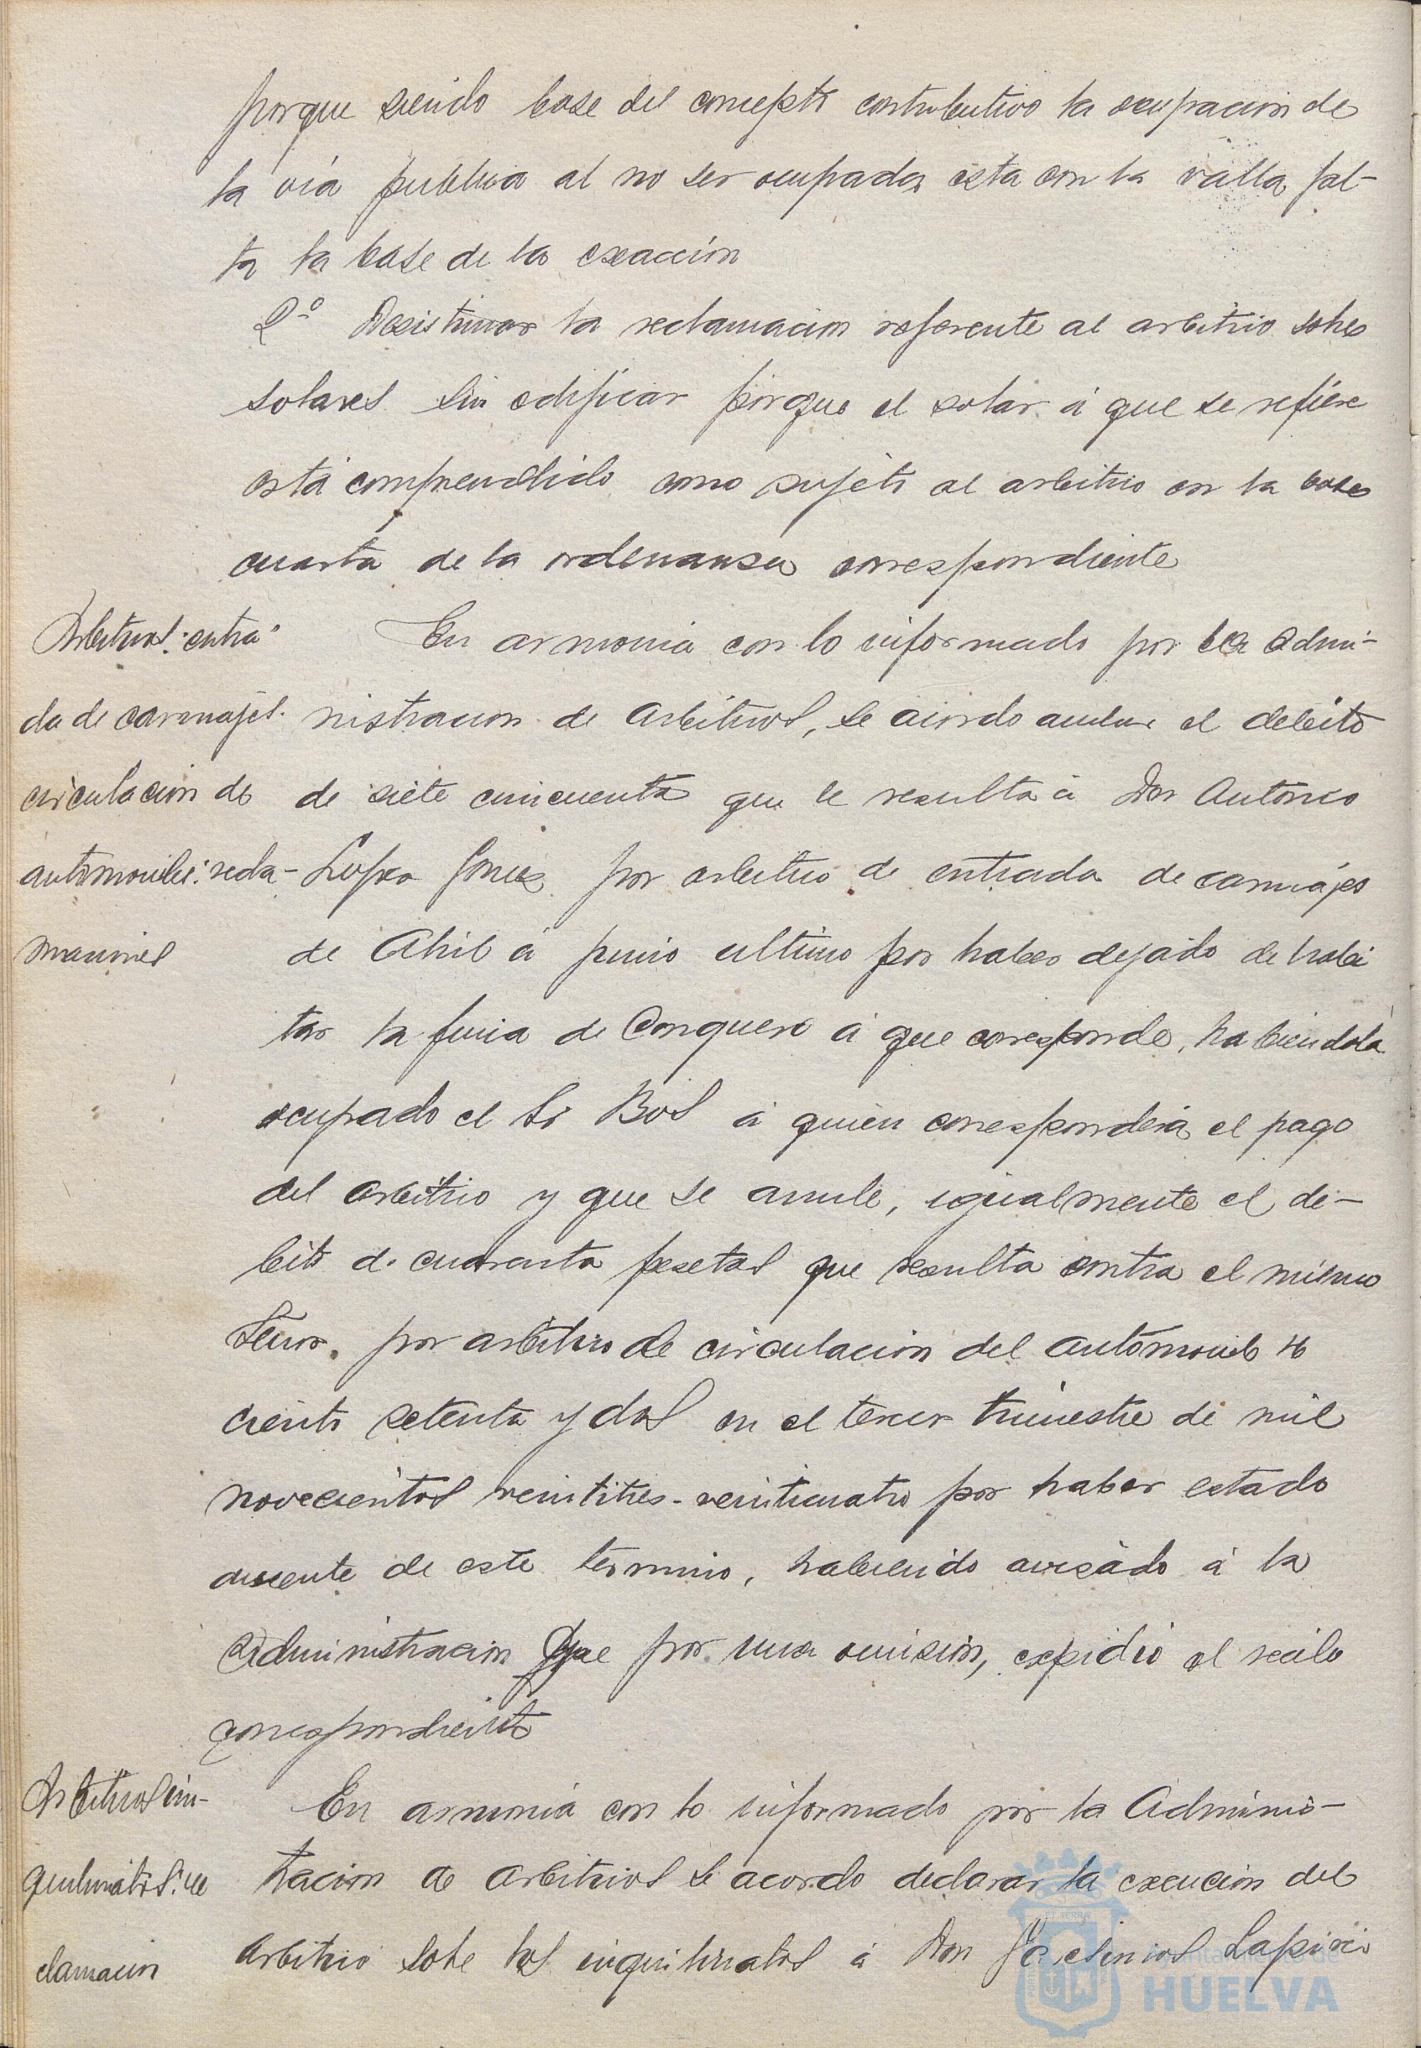 porque siendo base del concepto contributivo la ocupacion de
la via publica al no ser ocupada esta con la valla fal-
ta la base de la exacción
2º Desistimar la reclamacion referente al arbitrio sobre
solares sin edificar porque el solar á que se refiere
está comprendido como sujeto al arbitrio en la base
cuarta de la ordenansa correspondiente
Arbitrios: entra-
da de carruajes.
circulación de
automoviles: recla-
maciones
En armonia con lo informado por la Admi-
nistracion de Arbitrios, se acordo anular el debito
de siete cincuenta que le resulta á Don Antonio
por arbitrio de entrada de carruajes
de Abril á junio ultimo por haber dejado de habi
tar la finca de Conquero á que corresponde, habiendola
ocupado el Sr Bos á quien corresponderá el pago
del arbitrio y que se anule, igualmente el de-
bito de cuarenta pesetas que resulta contra el mismo
Señor. por arbitrio de circulacion del automovil H
ciento setenta y dos en el tercer trimestre de mil
novecientos veintitres-veinticuatro por haber estado
ausente de este termino, habiendo avisado á la
Administracion que por una omisión, expidió el recibo
correspondiente
Arbitrios in-
quilinatos: re
clamacion
En armonia con lo informado por la Adminis-
tracion de Arbitrios se acordo declarar la exencion del
arbitrio sobre los inquilinatos á Don
Ayuntamiento de
HUELVA